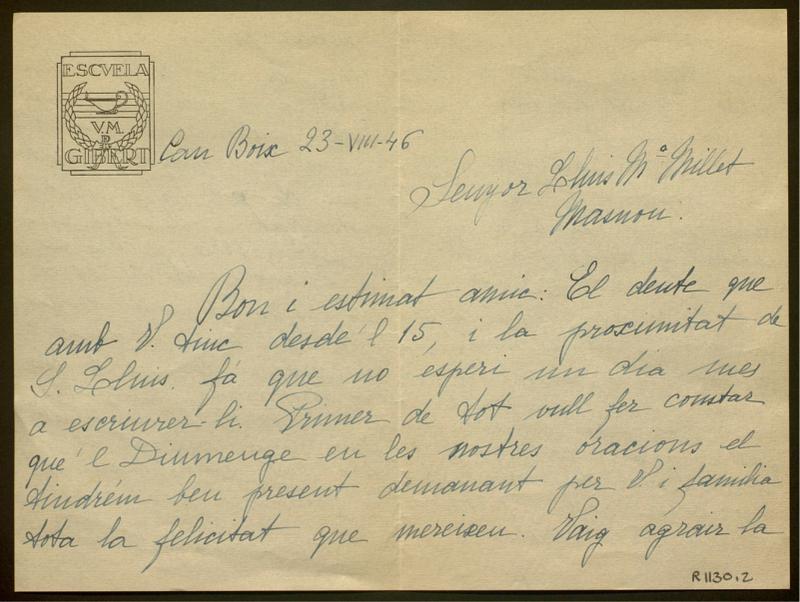 ESCVELA
V.M.
GIBERT
Can Boix 23-VIII-46
Senyor Lluis Mª Millet
Masnou.
Bon i estimat amic: El deute que
amb V. tinc desde'l 15, i la proximitat de
S. Lluis. fá que no esperi un dia mes
a escriurer-li. Primer de tot vull fer constar
que'l Diumenge en les nostres oracions el
tindrém ben present demanant per V. i familia
tota la felicitat que mereixen. Vaig agrair la
R1130.2